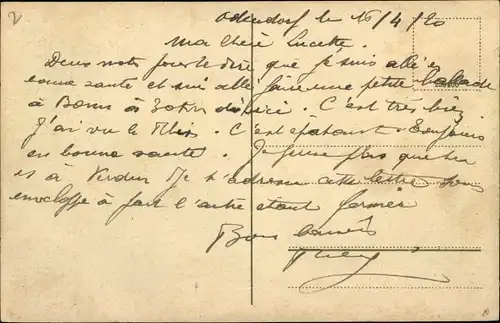 Odendorf le 16/4/20
Ma chère Lucette.
Deux mots pour te dire que je suis allé
bonne santé et suis allé faire une petite balade
à Bonn à 20 km d'ici. C'est très bien
J'ai vu le Rhin. C'est épatant. Toujours
en bonne santé. Je pense plus que tu
es à Verdun Je t'adresse cette lettre sous
enveloppe à part l'autre étant fermée
Bons baisers